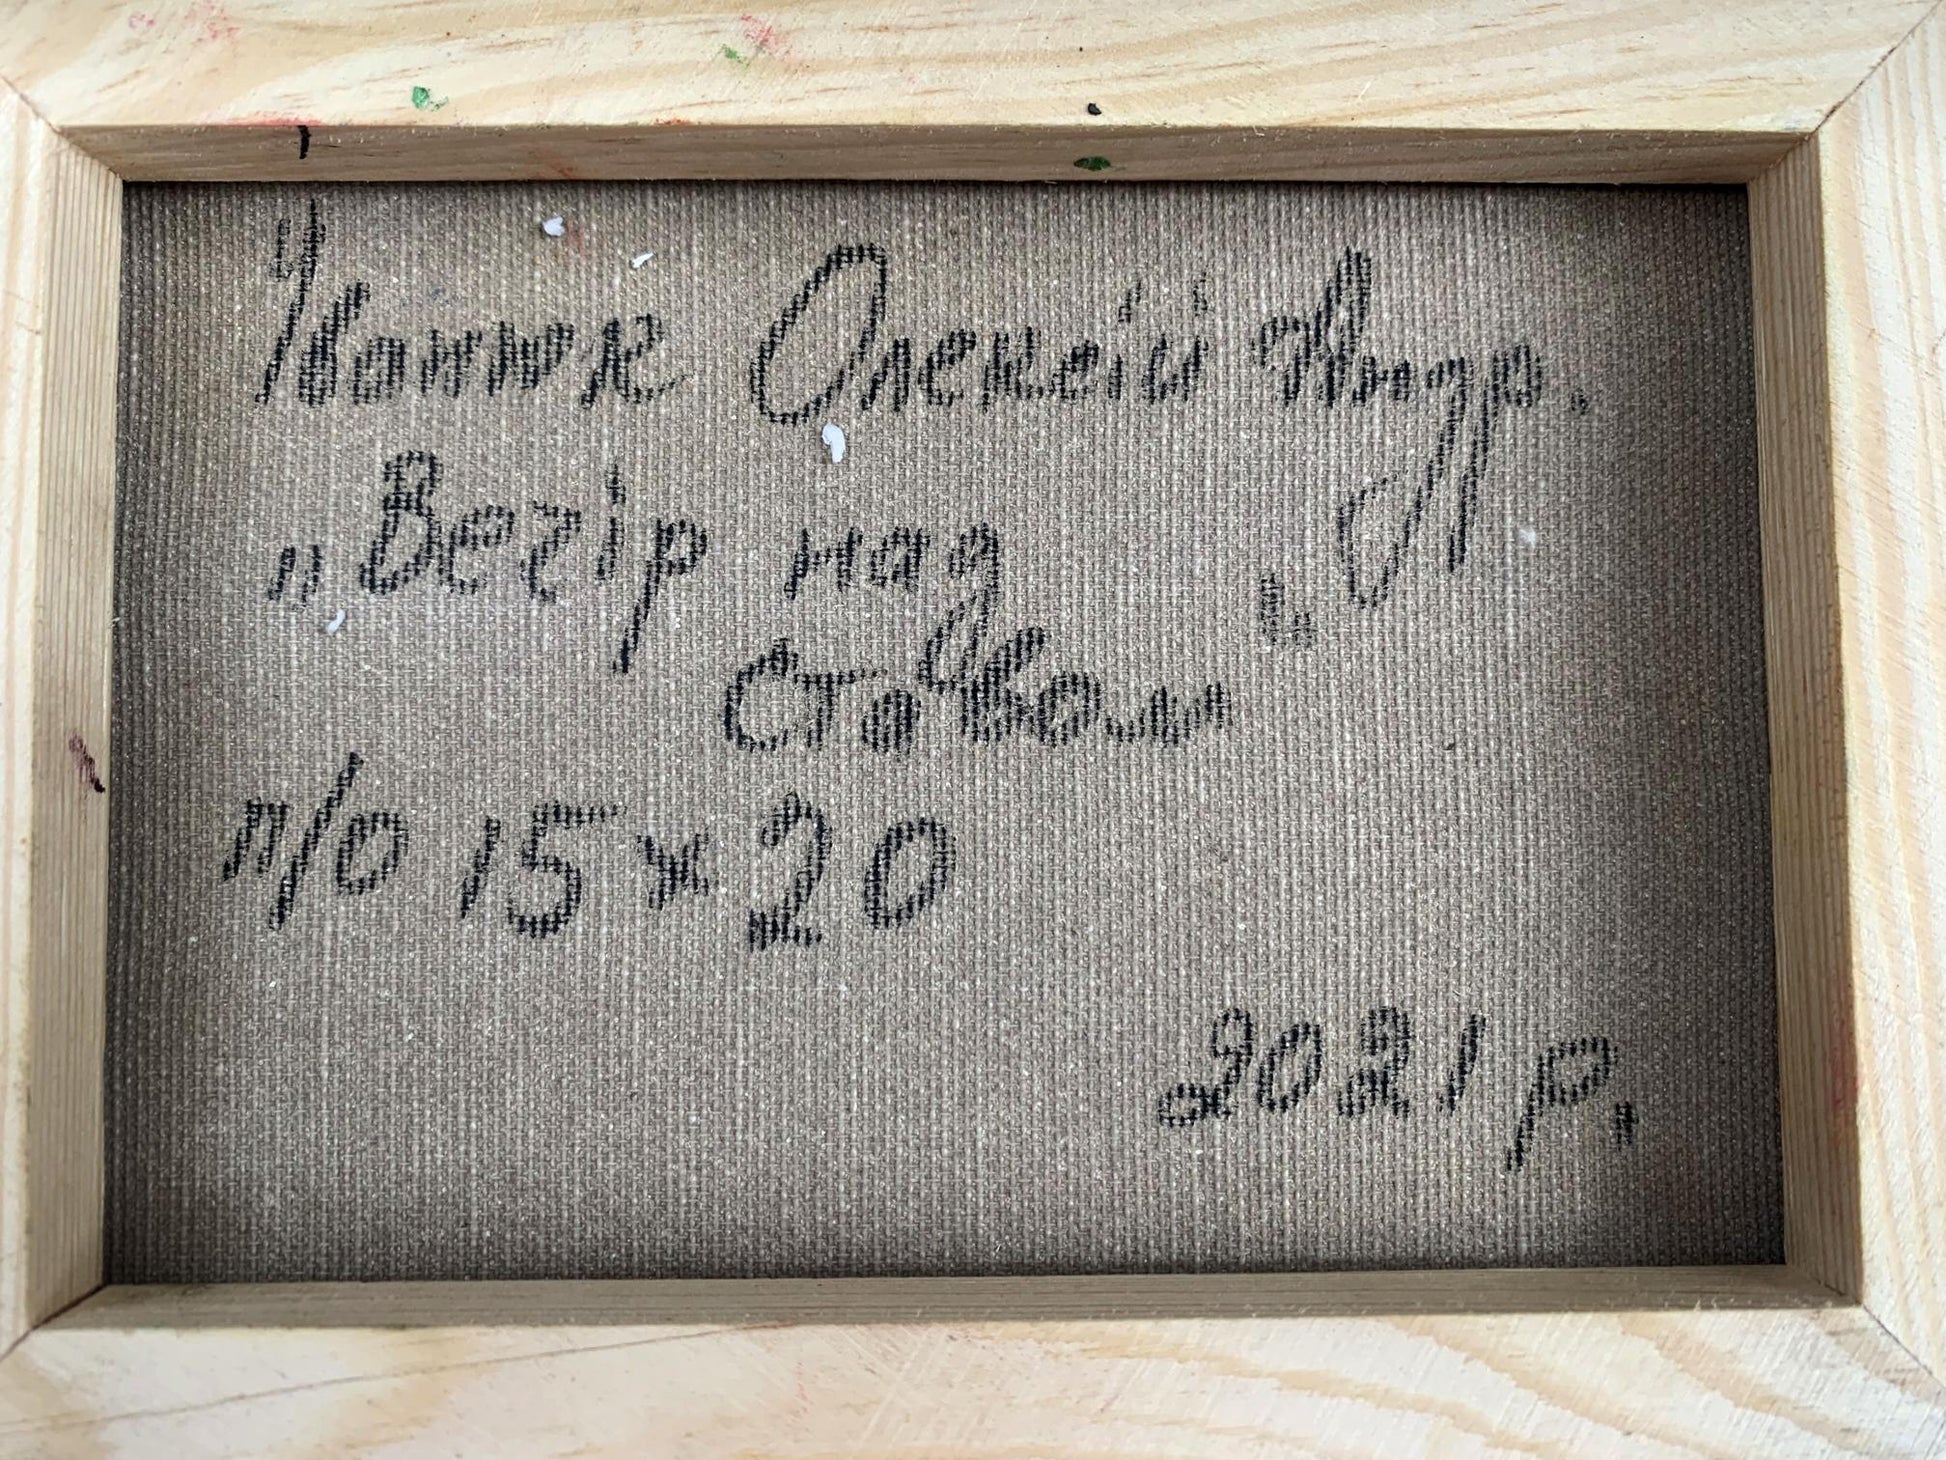 Коник Олексій Андр.
„Вечір над
ставом“
п/о 15х20
2021 р.